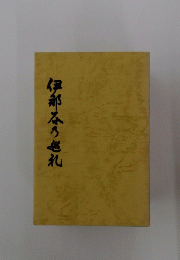 伊那谷乃巡礼